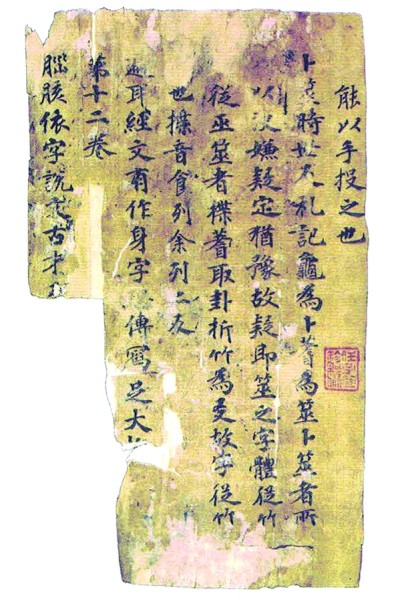 能以手投之也
卜筮時世反礼記龜為卜蓍為筮卜筮者所
以決嫌疑定猶豫故疑即筮之字體從竹
從巫筮者揲蓍取卦折竹為爻故字從竹
也揲音食列余列二反
耳經文有作身字傳寫足大
第十二卷
腦胲依字說文古才